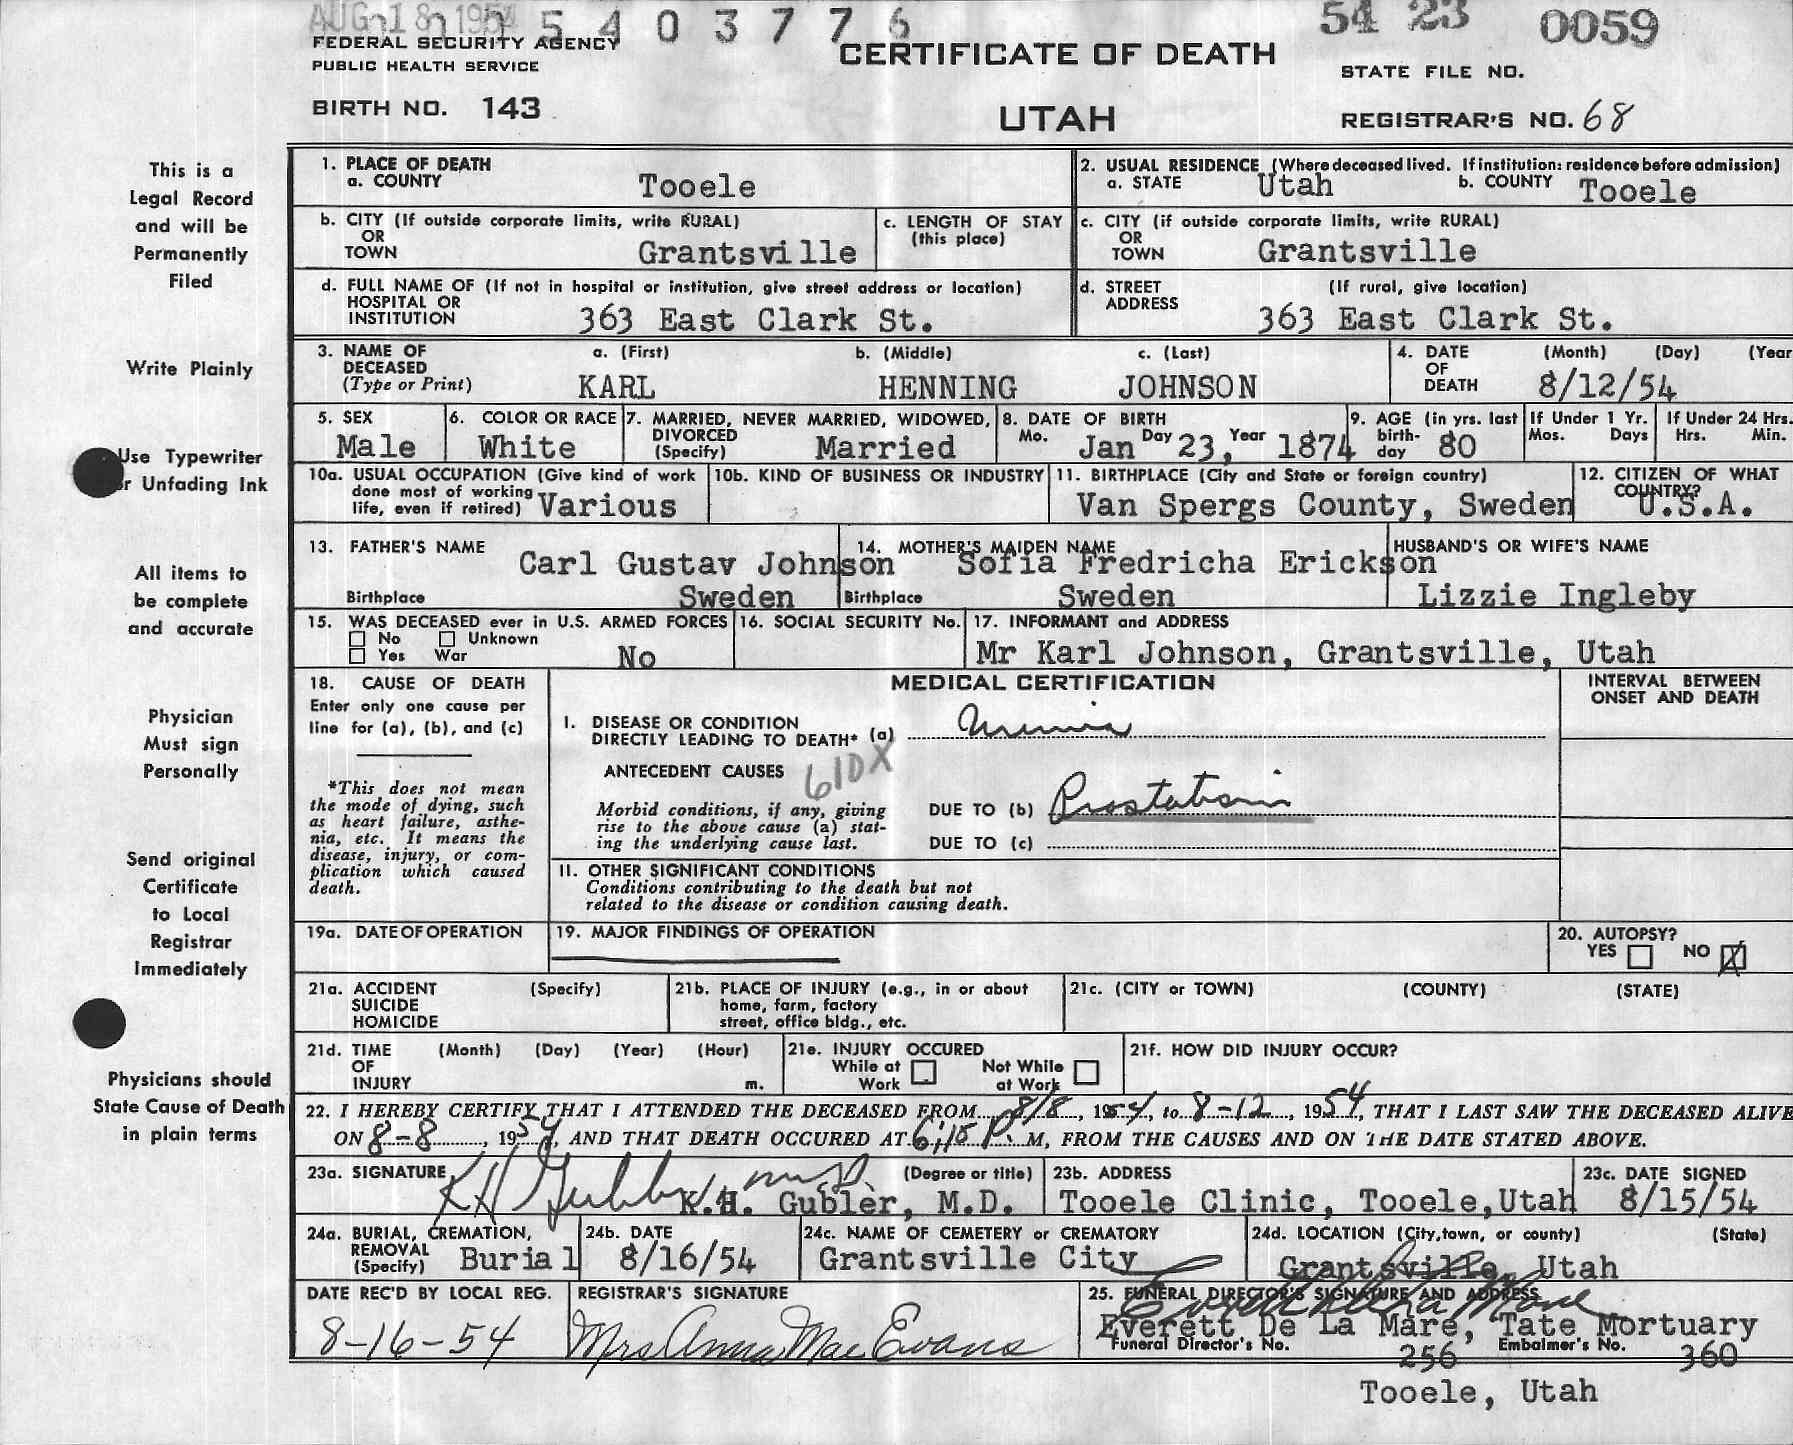 AUG 18 1954 5 4 0 3 7 7 6 54 23 0059
FEDERAL SECURITY AGENCY
PUBLIC HEALTH SERVICE
CERTIFICATE OF DEATH
STATE FILE NO.
BIRTH NO. 143
UTAH
REGISTRAR'S NO. 68
This is a
Legal Record
and will be
Permanently
Filed
Write Plainly
Use Typewriter
or Unfading Ink
All items to
be complete
and accurate
Physician
Must sign
Personally
Send original
Certificate
to Local
Registrar
immediately
Physicians should
State Cause of Death
in plain terms
1. PLACE OF DEATH
a. COUNTY Tooele
2. USUAL RESIDENCE (Where deceased lived. If institution: residence before admission)
a. STATE Utah b. COUNTY Tooele
b. CITY (If outside corporate limits, write RURAL)
OR
TOWN Grantsville
c. LENGTH OF STAY
(this place)
c. CITY (if outside corporate limits, write RURAL)
OR
TOWN Grantsville
d. FULL NAME OF (If not in hospital or institution, give street address or location)
HOSPITAL OR
INSTITUTION 363 East Clark St.
d. STREET (If rural, give location)
ADDRESS
363 East Clark St.
3. NAME OF a. (First) b. (Middle) c. (Last)
DECEASED
(Type or Print) KARL HENNING JOHNSON
4. DATE (Month) (Day) (Year
OF
DEATH 8/12/54
5. SEX
Male
6. COLOR OR RACE
White
7. MARRIED, NEVER MARRIED, WIDOWED,
DIVORCED
(Specify) Married
8. DATE OF BIRTH
Mo. Jan Day 23, Year 1874
9. AGE (in yrs. last
birth-
day 80
If Under 1 Yr.
Mos. Days
If Under 24 Hrs.
Hrs. Min.
10a. USUAL OCCUPATION (Give kind of work
done most of working
life, even if retired) Various
10b. KIND OF BUSINESS OR INDUSTRY
11. BIRTHPLACE (City and State or foreign country)
Van Spergs County, Sweden
12. CITIZEN OF WHAT
COUNTRY?
U.S.A.
13. FATHER'S NAME
Carl Gustav Johnson
Birthplace Sweden
14. MOTHER'S MAIDEN NAME
Sofia Fredricha Erickson
Birthplace Sweden
HUSBAND'S OR WIFE'S NAME
Lizzie Ingleby
15. WAS DECEASED ever in U.S. ARMED FORCES
No Unknown
Yes War No
16. SOCIAL SECURITY No.
17. INFORMANT and ADDRESS
Mr Karl Johnson, Grantsville, Utah
18. CAUSE OF DEATH
Enter only one cause per
line for (a), (b), and (c)
*This does not mean
the mode of dying, such
as heart failure, asthe-
nia, etc. It means the
disease, injury, or com-
plication which caused
death.
MEDICAL CERTIFICATION
INTERVAL BETWEEN
ONSET AND DEATH
I. DISEASE OR CONDITION
DIRECTLY LEADING TO DEATH* (a) Uremia
ANTECEDENT CAUSES 610X
Morbid conditions, if any, giving
rise to the above cause (a) stat-
ing the underlying cause last.
DUE TO (b)
DUE TO (c)
II. OTHER SIGNIFICANT CONDITIONS
Conditions contributing to the death but not
related to the disease or condition causing death.
19a. DATE OF OPERATION
19. MAJOR FINDINGS OF OPERATION
20. AUTOPSY?
YES NO X
21a. ACCIDENT (Specify)
SUICIDE
HOMICIDE
21b. PLACE OF INJURY (e.g., in or about
home, farm, factory
street, office bldg., etc.
21c. (CITY or TOWN) (COUNTY) (STATE)
21d. TIME (Month) (Day) (Year) (Hour)
OF
INJURY m.
21e. INJURY OCCURED
While at Not While
Work at Work
21f. HOW DID INJURY OCCUR?
22. I HEREBY CERTIFY THAT I ATTENDED THE DECEASED FROM 8/8, 1954, to 8-12, 1954, THAT I LAST SAW THE DECEASED ALIVE
ON 8-8, 1954, AND THAT DEATH OCCURED AT 6:15 P. M, FROM THE CAUSES AND ON THE DATE STATED ABOVE.
23a. SIGNATURE (Degree or title)
KH Gubler M.D.
K.H. Gubler, M.D.
23b. ADDRESS
Tooele Clinic, Tooele,Utah
23c. DATE SIGNED
8/15/54
24a. BURIAL, CREMATION,
REMOVAL
(Specify) Burial
24b. DATE
8/16/54
24c. NAME OF CEMETERY or CREMATORY
Grantsville City
24d. LOCATION (City,town, or county) (State)
Grantsville, Utah
DATE REC'D BY LOCAL REG.
8-16-54
REGISTRAR'S SIGNATURE
Mrs Anna Mae Evans
25. FUNERAL DIRECTOR'S SIGNATURE AND ADDRESS
Everett De La Mare
Everett De La Mare, Tate Mortuary
Funeral Director's No. 256 Embalmer's No. 360
Tooele, Utah